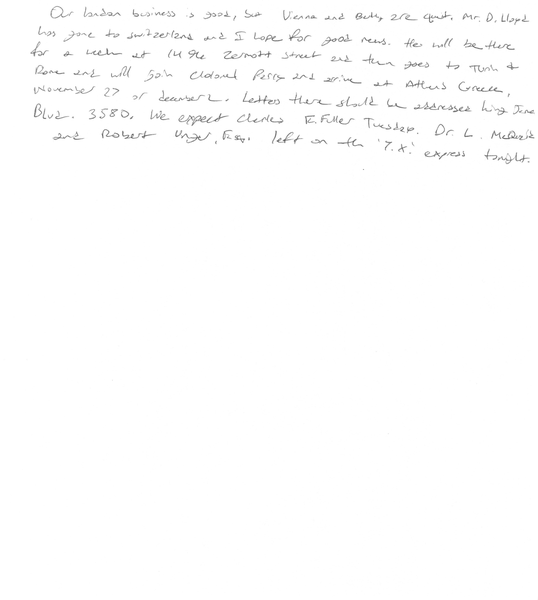 Our London business is good, but Vienna and Berlin are quiet. Mr. D. Lloyd
has gone to Switzerland and I hope for good news. He will be there
for a week at 1496 Zermott street and then goes to Turin &
Rome and will join Colonel Perry and arrive at Athens Greece,
November 27 or december 2. Letters there should be addressed King James
Blvd. 3580. We expect Charles E. Fuller Tuesday. Dr. L. McQuaid
and Robert Unger, Esq. left on the '7.X.' express tonight.